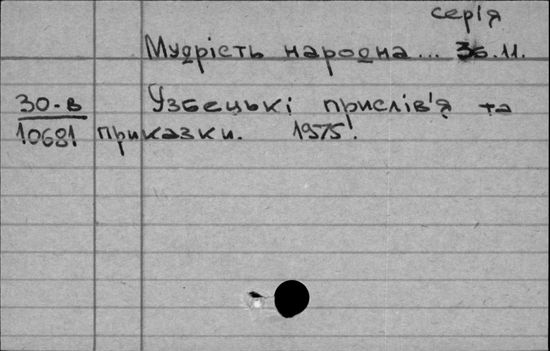 серія
Мудрість народна... Зб. 11.
30-в Узбецькі прислів'я та
10681 приказки. 1975!